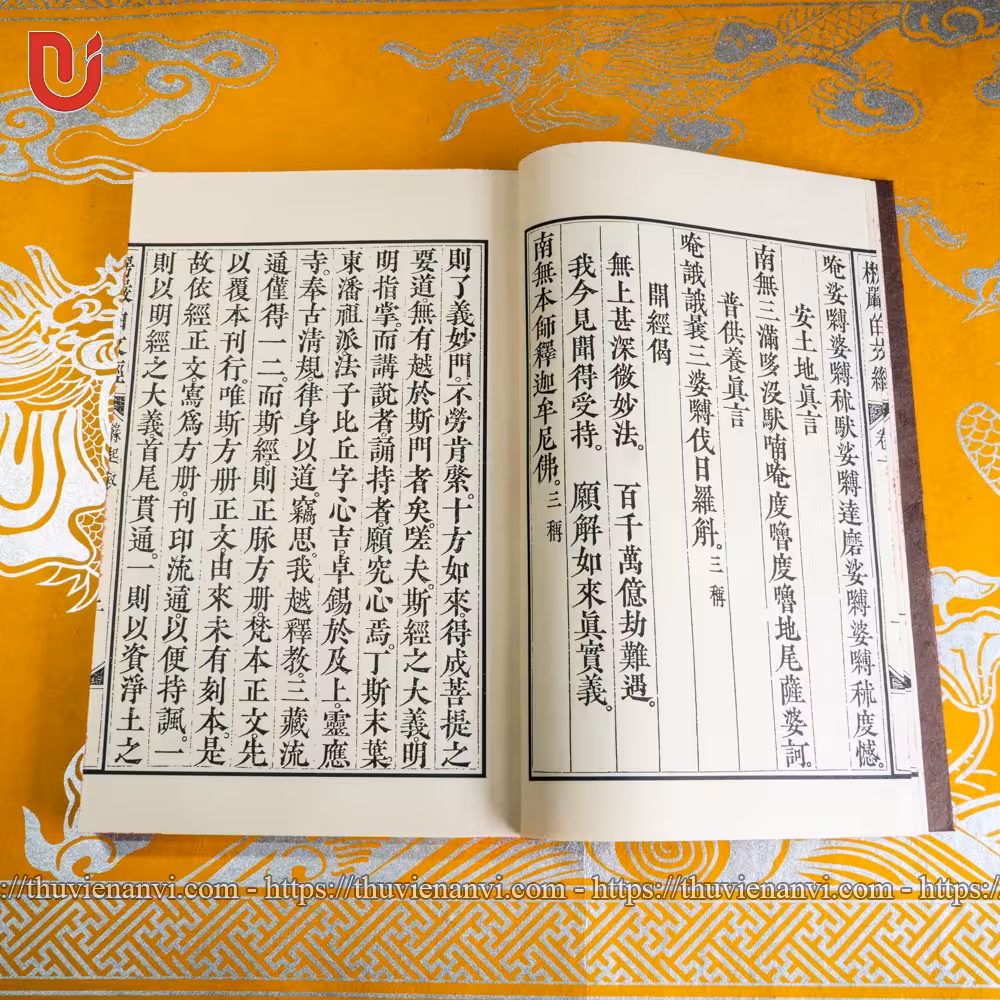 唵娑嚩婆嚩秫䭾娑嚩達磨娑嚩婆嚩秫度憾。
安土地眞言
南無三滿哆沒䭾喃。唵度嚕度嚕地尾薩婆訶。
普供養眞言
唵誐誐曩三婆嚩伐日羅斛。三稱
開經偈
無上甚深微妙法。 百千萬億劫難遇。
我今見聞得受持。 願解如來眞實義。
南無本師釋迦牟尼佛。三稱
則了義妙門。不勞肯綮。十方如來。得成菩提之
要道。無有越於斯門者矣。嗟夫。斯經之大義。明
明指掌。而講說者。誦持者。願究心焉。丁斯末葉。
東潘祖派。法子比丘字心吉。卓錫於及上。靈應
寺。奉古清規。律身以道。竊思。我越釋教。三藏流
通。僅得一二。而斯經。則正脉方册。梵本正文。先
以覆本刊行。唯斯方册正文。由來未有刻本。是
故依經正文。寫爲方册。刊印流通。以便持諷。一
則以明經之大義。首尾貫通。一則以資淨土之
緣起敘
https://thuvienanvi.com - https://thuvienanvi.com - https://thuvienanvi.com